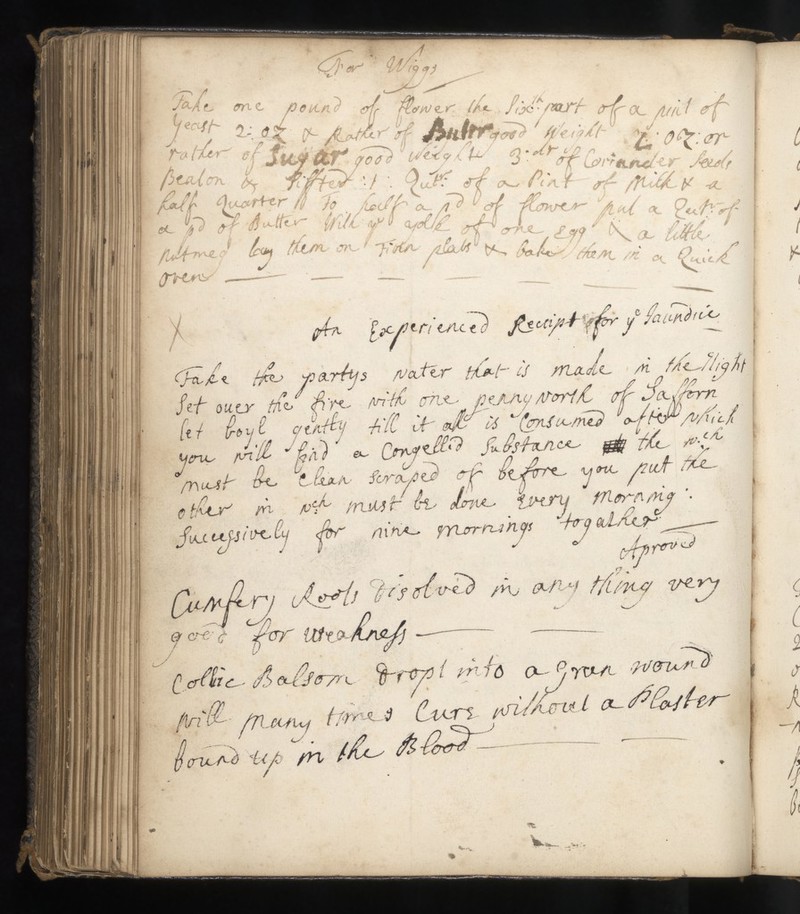 For Wiggs
Take one pound of flower the Sixth part of a pint of
yeast 2: oz & Rather of Butter good weight 2: oz: or
rather of Sugar good weight 3: dr of Coriander Seeds
Beaton & Sifted :1: Qutr of a Pint of Milk & a
half Quarter To half a pd of flower put a Qutr of
a pd of Butter With ye yolk of one Egg & a little
Nutmeg lay them on Tinn plats & bake them in a Quick
oven
X An Experienced Receipt for ye Jaundice
Take the partys water that is made in the Night
Set over the fire with one pennyworth of Saffern
let boyl gently till it all is Consumed after which
you will find a Congelled Substance the wch
must be Clean scraped of before you put the
other in wch must be done Every morning:
Successively for nine mornings togather
Aproved
Cumfery Roots Disolved in any thing very
good for weakness
Collic Balsom Dropt into a Grun wound
will many times Cure without a Plaster
bound up in the Blood